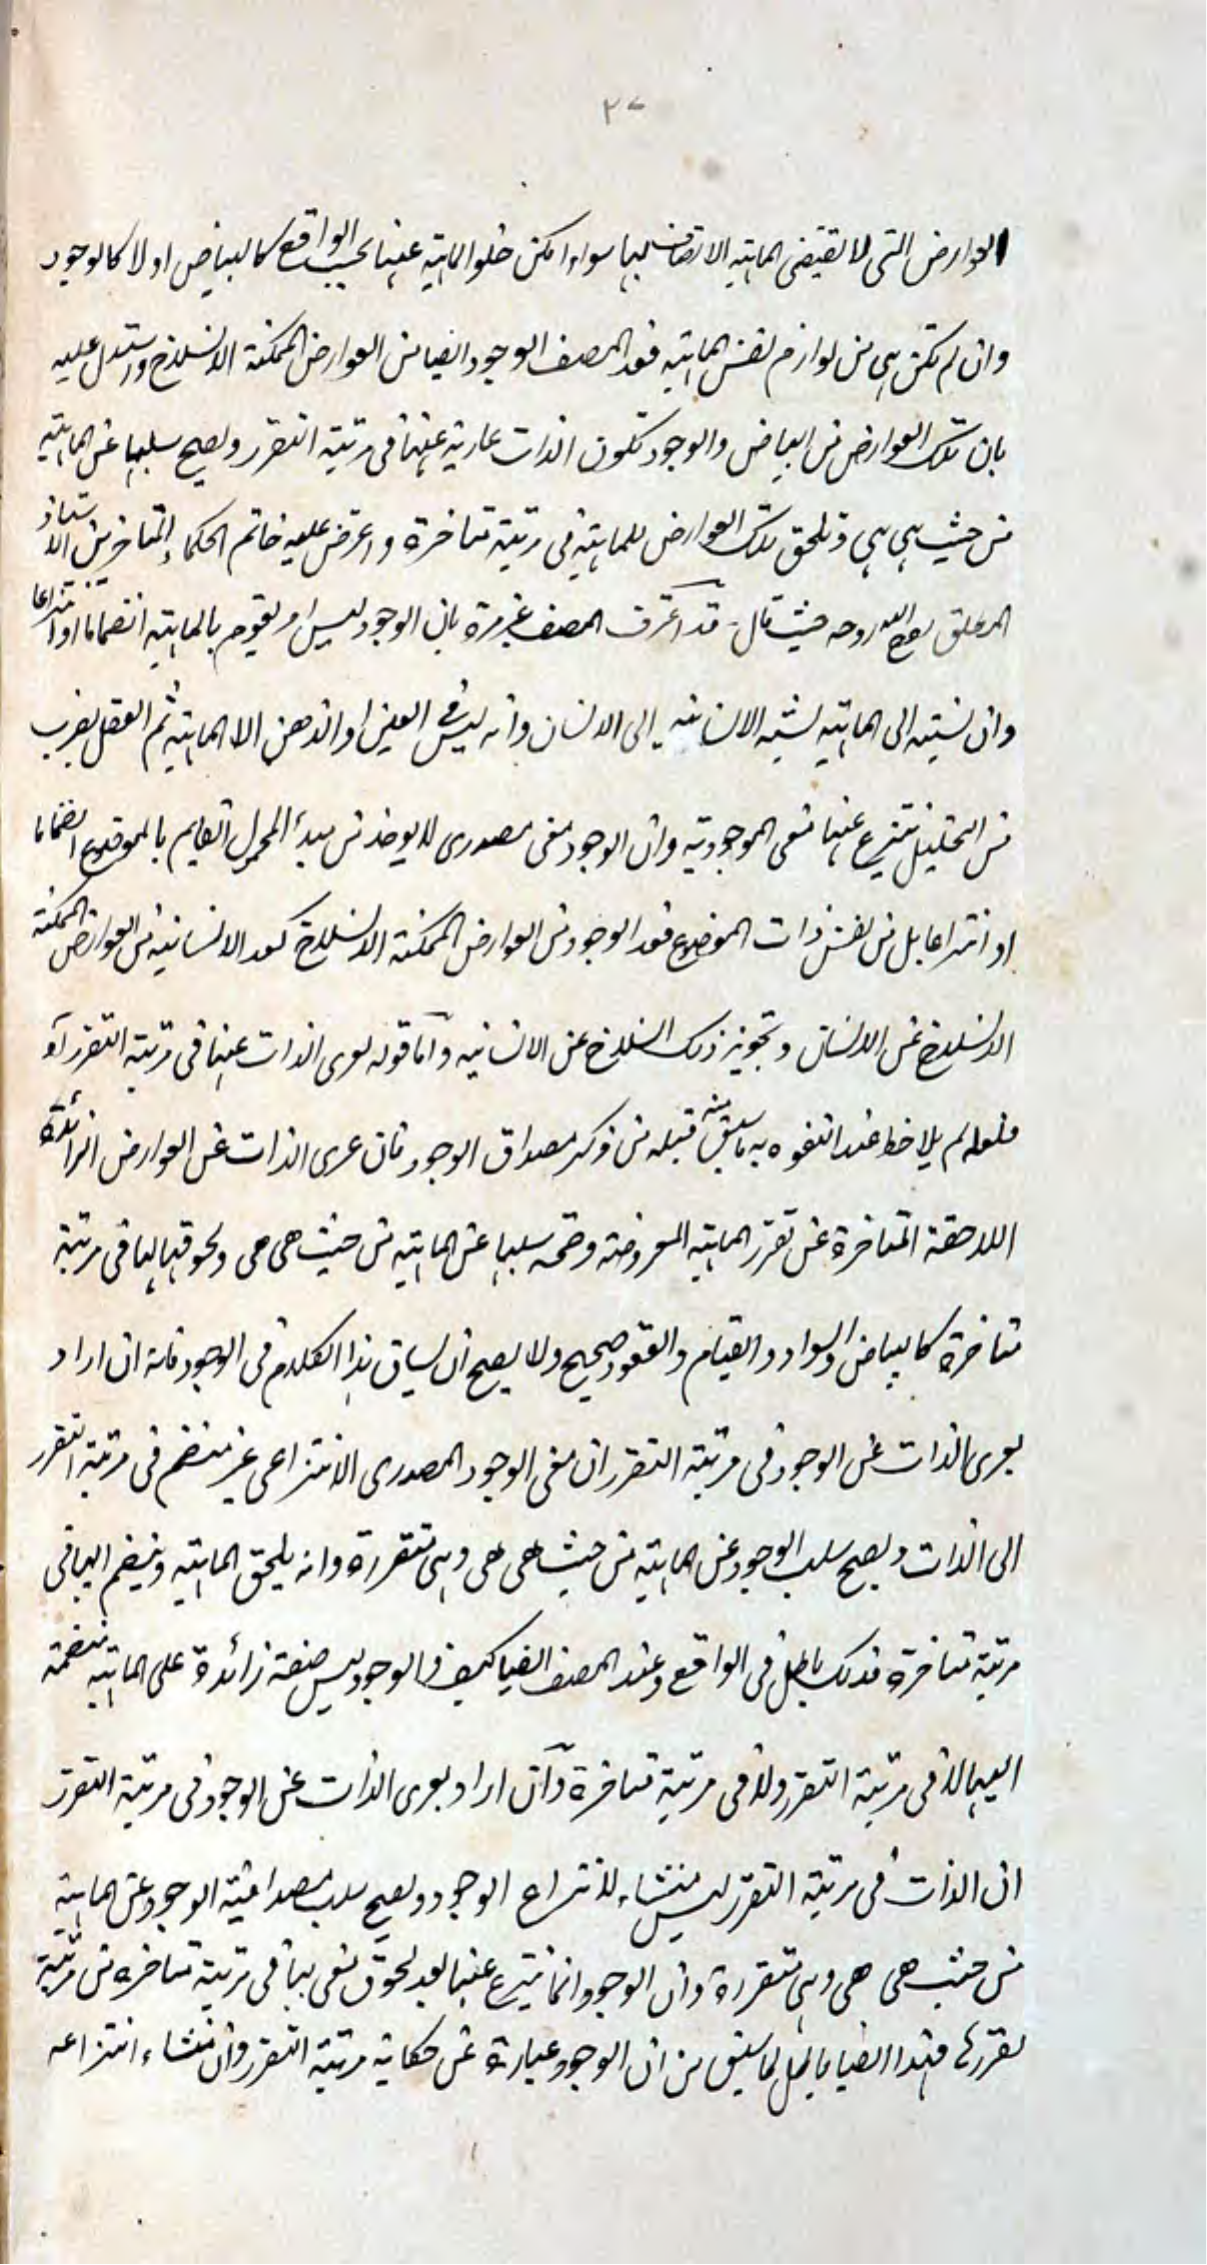 ٢٧
العوارض التى لا تقتضى الماهية الاتصاف بها سواء امكن خلو الماهية عنها بحسب الواقع كالبياض او لا كالوجود
وان لم تكن هى من لوازم نفس الماهية فعد المصنف الوجود ايضا من العوارض الممكنة الانسلاخ واستدل عليه
بان تلك العوارض من البياض والوجود تكون الذات عارية عنها فى مرتبة التقرر ويصح سلبها عن الماهية
من حيث هى هى وتلحق تلك العوارض للماهية فى مرتبة متاخرة واعترض عليه خاتم الحكماء المتاخرين الاستاذ
المطلق روح الله روحه حيث قال قد اعترف المصنف غير مرة بان الوجود ليس امر يقوم بالماهية انضماما او انتزاعا
وان نسبته الى الماهية نسبة الانسانية الى الانسان وانه ليس فى العين او الذهن الا الماهية ثم العقل بضرب
من التحليل ينتزع عنها معنى الموجودية وان الوجود معنى مصدرى لا يوخذ من مبدأ المحمول القايم بالموضوع انضماما
او انتزاعا بل من نفس ذات الموضوع فعد الوجود من العوارض الممكنة الانسلاخ كعد الانسانية من العوارض الممكنة
الانسلاخ عن الانسان وتجويز ذلك انسلاخ عن الانسانية واما قوله بعرى الذات عنها فى مرتبة التقرر آه
فلعله لم يلاحظ عند التفوه به ما سبق منه قبله من ذكر مصداق الوجود فان عرى الذات عن العوارض الزائدة
اللاحقة المتاخرة عن تقرر الماهية المعروضة وصحة سلبها عن الماهية من حيث هى هى ولحوقها لها فى مرتبة
متاخرة كالبياض والسواد والقيام والقعود صحيح ولا يصح ان يساق هذا الكلام فى الوجود فانه ان اراد
بعرى الذات عن الوجود فى مرتبة التقرر ان معنى الوجود المصدرى الانتزاعى غير منضم فى مرتبة التقرر
الى الذات ويصح سلب الوجود عن الماهية من حيث هى هى وهى متقررة وانه يلحق الماهية وينضم اليها فى
مرتبة متاخرة فذلك باطل فى الواقع وعند المصنف ايضا كيف والوجود ليس صفة زائدة على الماهية منضمة
اليها لا فى مرتبة التقرر ولا فى مرتبة متاخرة وان اراد بعرى الذات عن الوجود فى مرتبة التقرر
ان الذات فى مرتبة التقرر ليس منشاء لانتزاع الوجود ويصح سلب مصداقية الوجود عن الماهية
من حيث هى هى وهى متقررة وان الوجود انما ينتزع عنها بعد لحوق معنى بها فى مرتبة متاخرة من مرتبة
تقررها فهذا ايضا باطل لما سبق من ان الوجود عبارة عن حكاية مرتبة التقرر وان منشاء انتزاعه